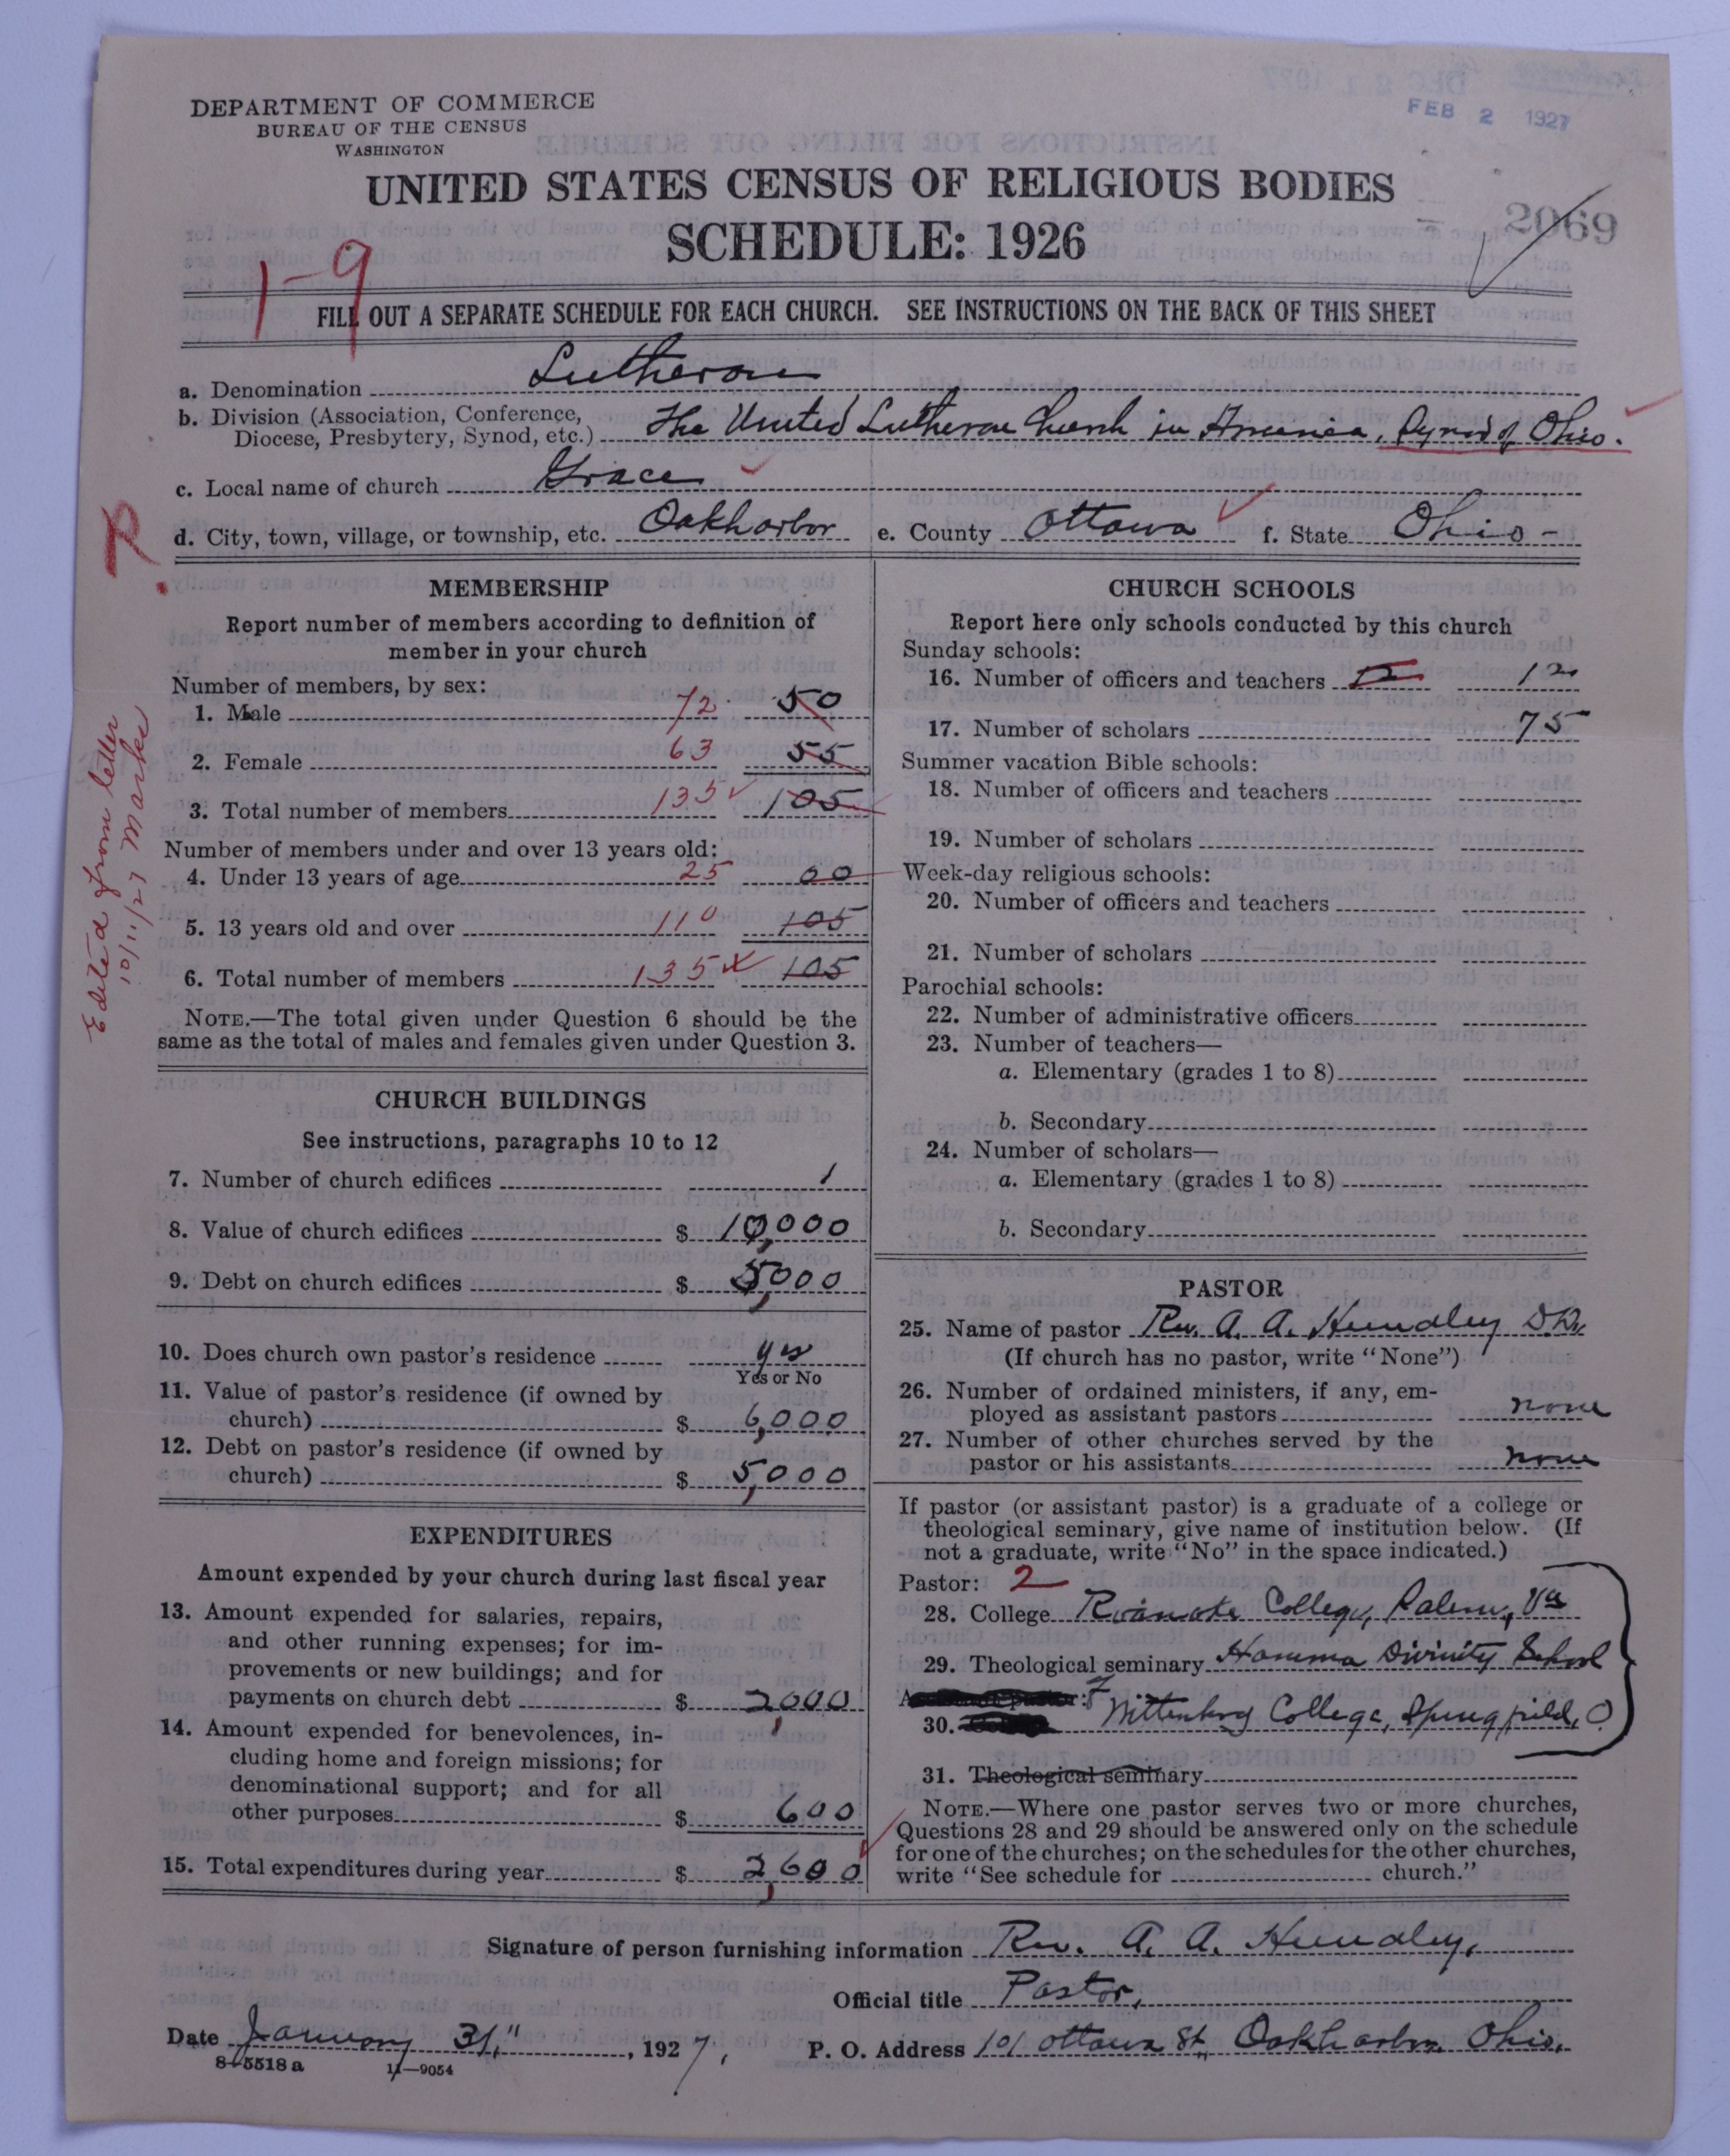 DEPARTMENT OF COMMERCE
BUREAU OF THE CENSUS
WASHINGTON
FEB 2 1927
UNITED STATES CENSUS OF RELIGIOUS BODIES
SCHEDULE: 1926
2069
1-9
FILL OUT A SEPARATE SCHEDULE FOR EACH CHURCH. SEE INSTRUCTIONS ON THE BACK OF THIS SHEET
a. Denomination Lutheran
b. Division (Association, Conference,
Diocese, Presbytery, Synod, etc.) The United Lutheran Church in America, Synod of Ohio.
c. Local name of church Grace
d. City, town, village, or township, etc. Oakharbor e. County Ottawa f. State Ohio -
Edited from letter
10/11/27 Marks
MEMBERSHIP
Report number of members according to definition of
member in your church
Number of members, by sex:
1. Male 72 50
2. Female 63 55
3. Total number of members 135 105
Number of members under and over 13 years old:
4. Under 13 years of age 25 00
5. 13 years old and over 110 105
6. Total number of members 135 105
NOTE.—The total given under Question 6 should be the
same as the total of males and females given under Question 3.
CHURCH BUILDINGS
See instructions, paragraphs 10 to 12
7. Number of church edifices 1
8. Value of church edifices $ 10,000
9. Debt on church edifices $ 5,000
10. Does church own pastor's residence yes
Yes or No
11. Value of pastor's residence (if owned by
church) $ 6,000
12. Debt on pastor's residence (if owned by
church) $ 5,000
EXPENDITURES
Amount expended by your church during last fiscal year
13. Amount expended for salaries, repairs,
and other running expenses; for im-
provements or new buildings; and for
payments on church debt $ 2,000
14. Amount expended for benevolences, in-
cluding home and foreign missions; for
denominational support; and for all
other purposes $ 600
15. Total expenditures during year $ 2,600
CHURCH SCHOOLS
Report here only schools conducted by this church
Sunday schools:
16. Number of officers and teachers 12
17. Number of scholars 75
Summer vacation Bible schools:
18. Number of officers and teachers
19. Number of scholars
Week-day religious schools:
20. Number of officers and teachers
21. Number of scholars
Parochial schools:
22. Number of administrative officers
23. Number of teachers—
a. Elementary (grades 1 to 8)
b. Secondary
24. Number of scholars—
a. Elementary (grades 1 to 8)
b. Secondary
PASTOR
25. Name of pastor Rev. A. A. Hundley
(If church has no pastor, write "None")
26. Number of ordained ministers, if any, em-
ployed as assistant pastors none
27. Number of other churches served by the
pastor or his assistants none
If pastor (or assistant pastor) is a graduate of a college or
theological seminary, give name of institution below. (If
not a graduate, write "No" in the space indicated.)
Pastor: 2
28. College Roanoke College, Salem, Va
29. Theological seminary Hamma Divinity School
30. Wittenberg College, Springfield, O.
31. Theological seminary
NOTE.—Where one pastor serves two or more churches,
Questions 28 and 29 should be answered only on the schedule
for one of the churches; on the schedules for the other churches,
write "See schedule for church."
Signature of person furnishing information Rev. A. A. Hundley,
Official title Pastor,
Date January 31," , 1927,
P. O. Address 101 Ottawa St. Oakharbor Ohio.
8-5518 a 11—9054